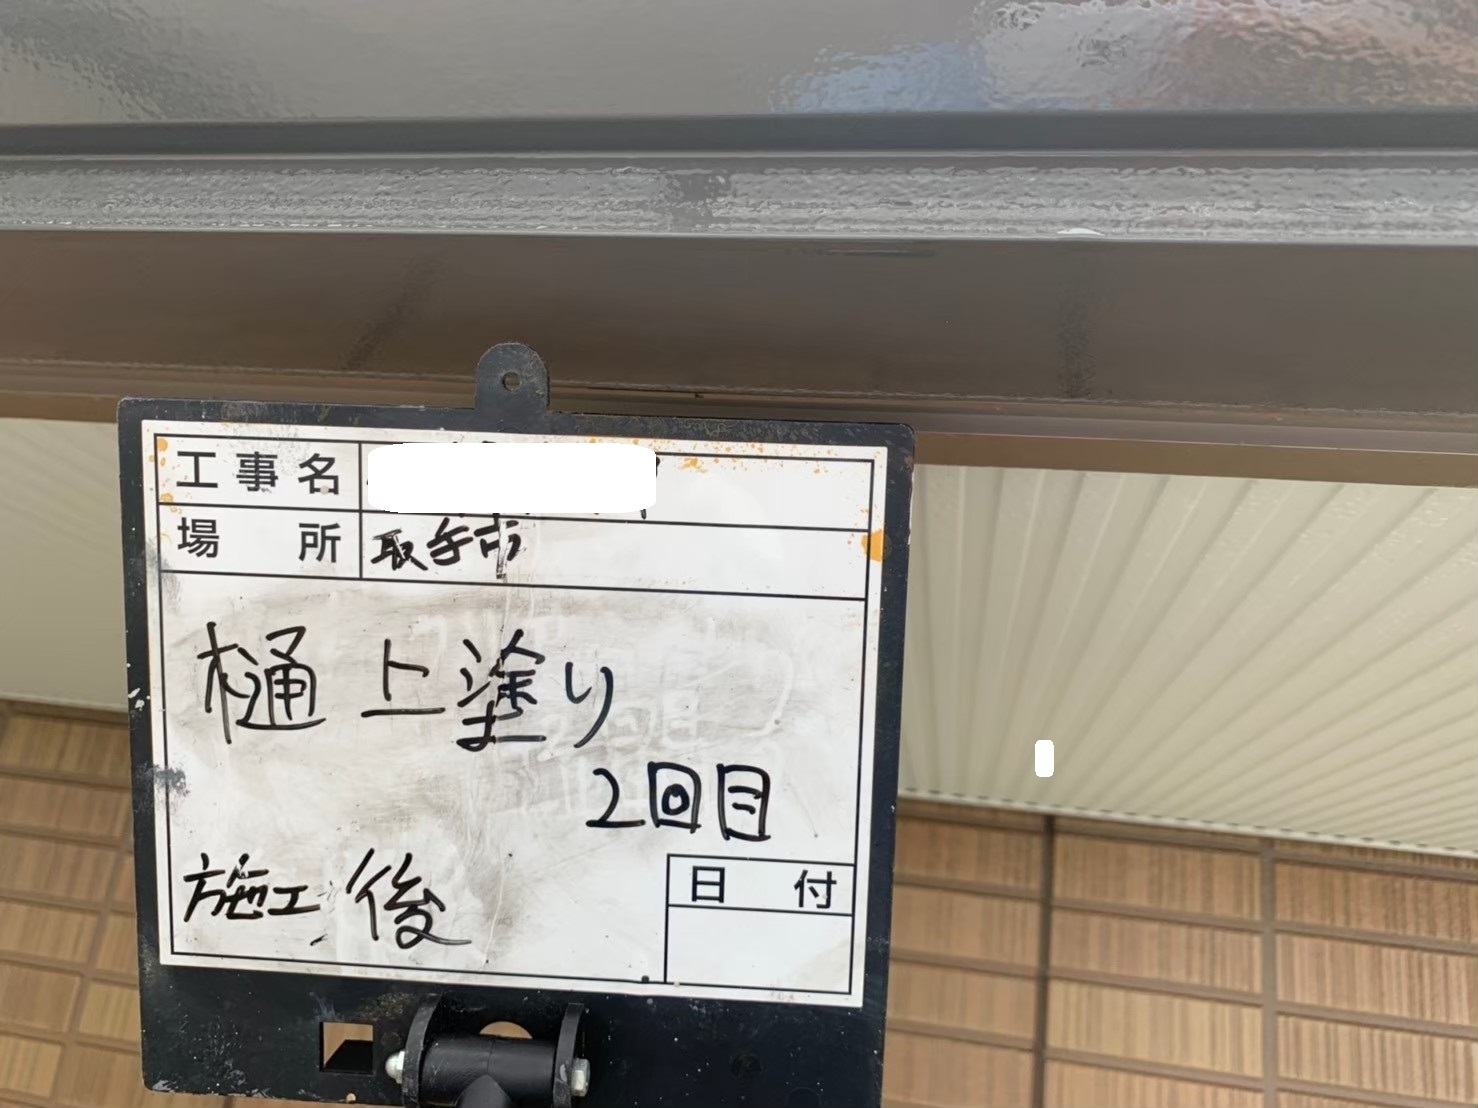 工事名
場所 取手市
樋 上塗り
2回目
施工後
日付